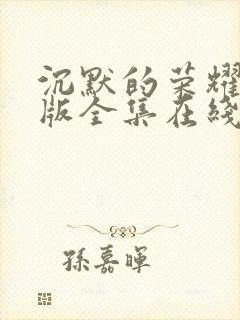 沉默的荣耀
版全集在线
孫嘉暉